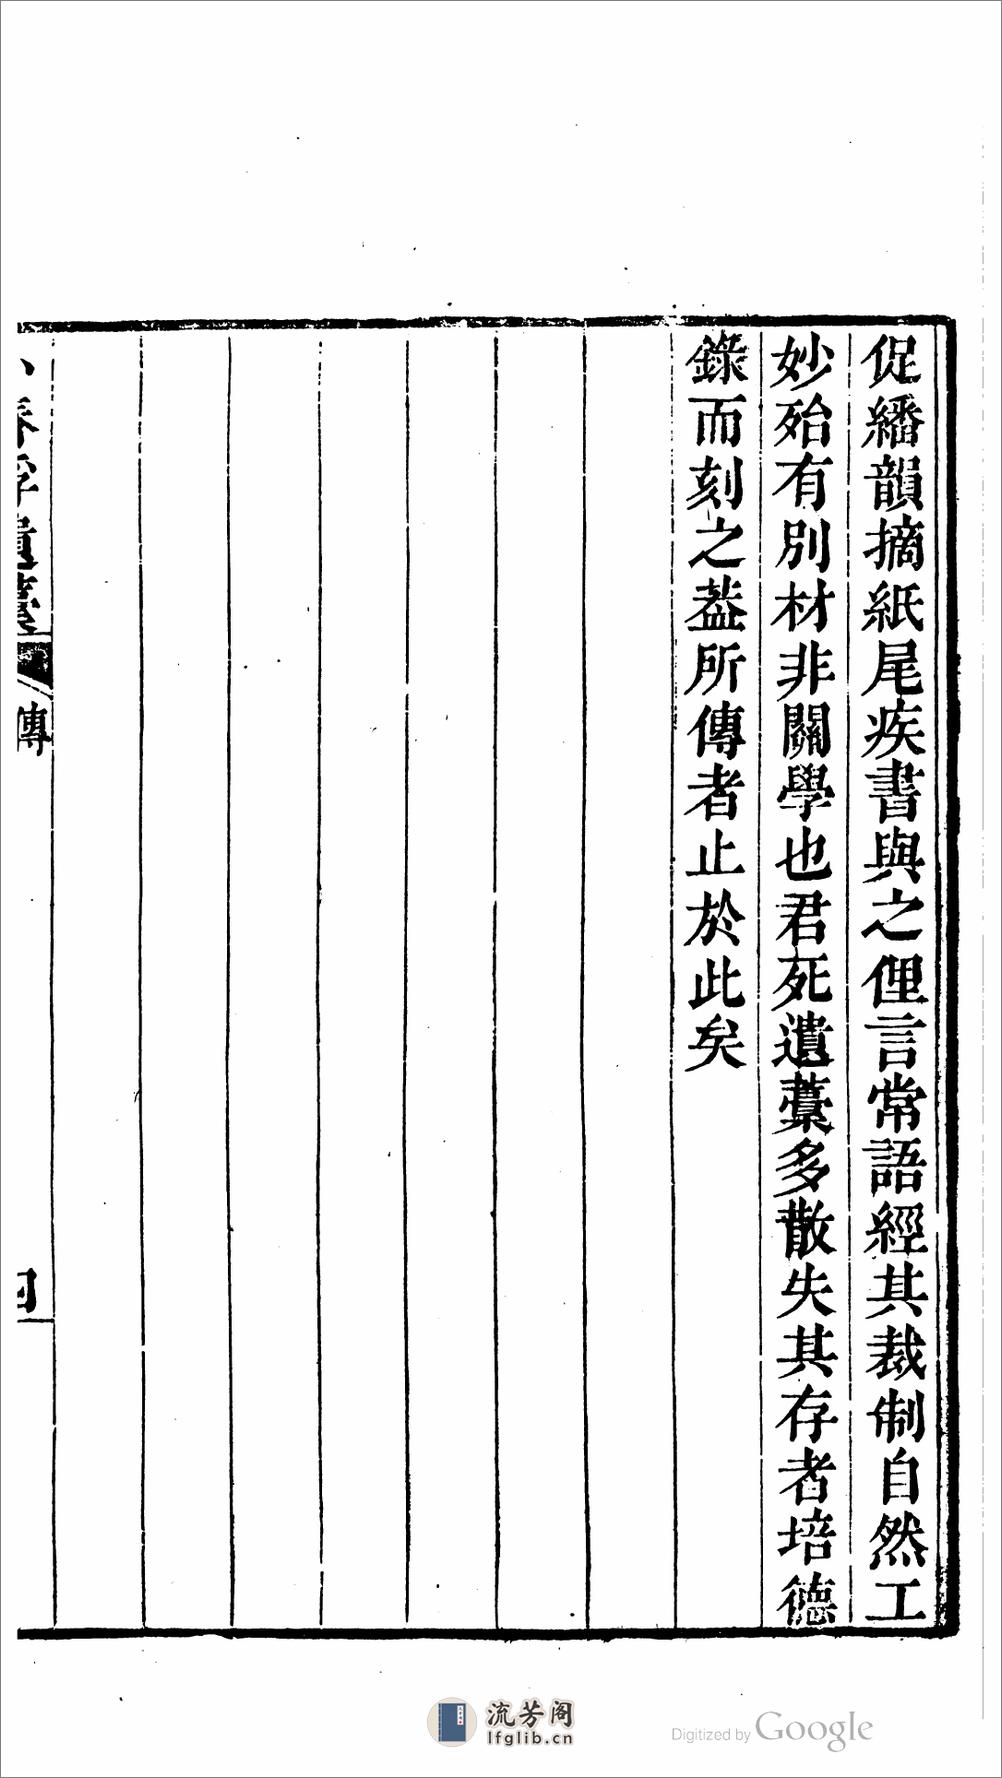 促繙韻摘紙尾疾書與之俚言常語經其裁制自然工
妙殆有別材非關學也君死遺藁多散失其存者培德
錄而刻之葢所傳者止於此矣
小春浮遺藁
傳
四
流芳阁
lfglib.cn
Digitized by Google